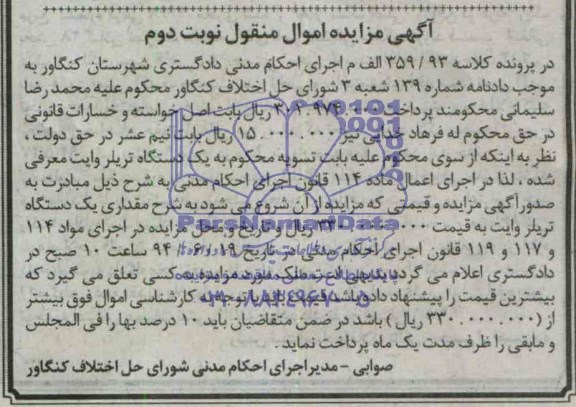 آگهی مزایده اموال منقول نوبت دوم
در پرونده کلاسه ۹۳ / ۳۵۹ الف م اجرای احکام مدنی دادگستری شهرستان کنگاور به
موجب دادنامه شماره ۱۳۹ شعبه ۳ شورای حل اختلاف کنگاور محکوم علیه محمد رضا
سلیمانی محکومند پرداخت ریال بابت اصل خواسته و خسارات قانونی
در حق محکوم له فرهاد خدایی نیز ۱۵۰۰۰۰۰۰ ریال بابت نیم عشر در حق دولت ،
نظر به اینکه از سوی محکوم علیه بابت تسویه محکوم به یک دستگاه تریلر وایت معرفی
شده ، لذا در اجرای اعمال ماده ۱۱۴ قانون اجرای احکام مدنی به شرح ذیل مبادرت به
صدور آگهی مزایده و قیمتی که مزایده از آن شروع می شود به شرح مقداری یک دستگاه
تریلر وایت به قیمت ریال و تاریخ و محل مزایده در اجرای مواد ۱۱۴
و ۱۱۷ و ۱۱۹ قانون اجرای احکام مدنی در تاریخ ۱۹ / ۶ / ۹۴ ساعت ۱۰ صبح در
دادگستری اعلام می گردد بدیهی است ملک مورد مزایده به کسی تعلق می گیرد که
بیشترین قیمت را پیشنهاد داده باشد توجه به کارشناسی اموال فوق بیشتر
از (۳۳۰.۰۰۰.۰۰۰ ریال ) باشد در ضمن متقاضیان باید ۱۰ درصد بها را فی المجلس
و مابقی را ظرف مدت یک ماه پرداخت نماید .
صوابی - مدیر اجرای احکام مدنی شورای حل اختلاف کنگاور
ParsNamadData